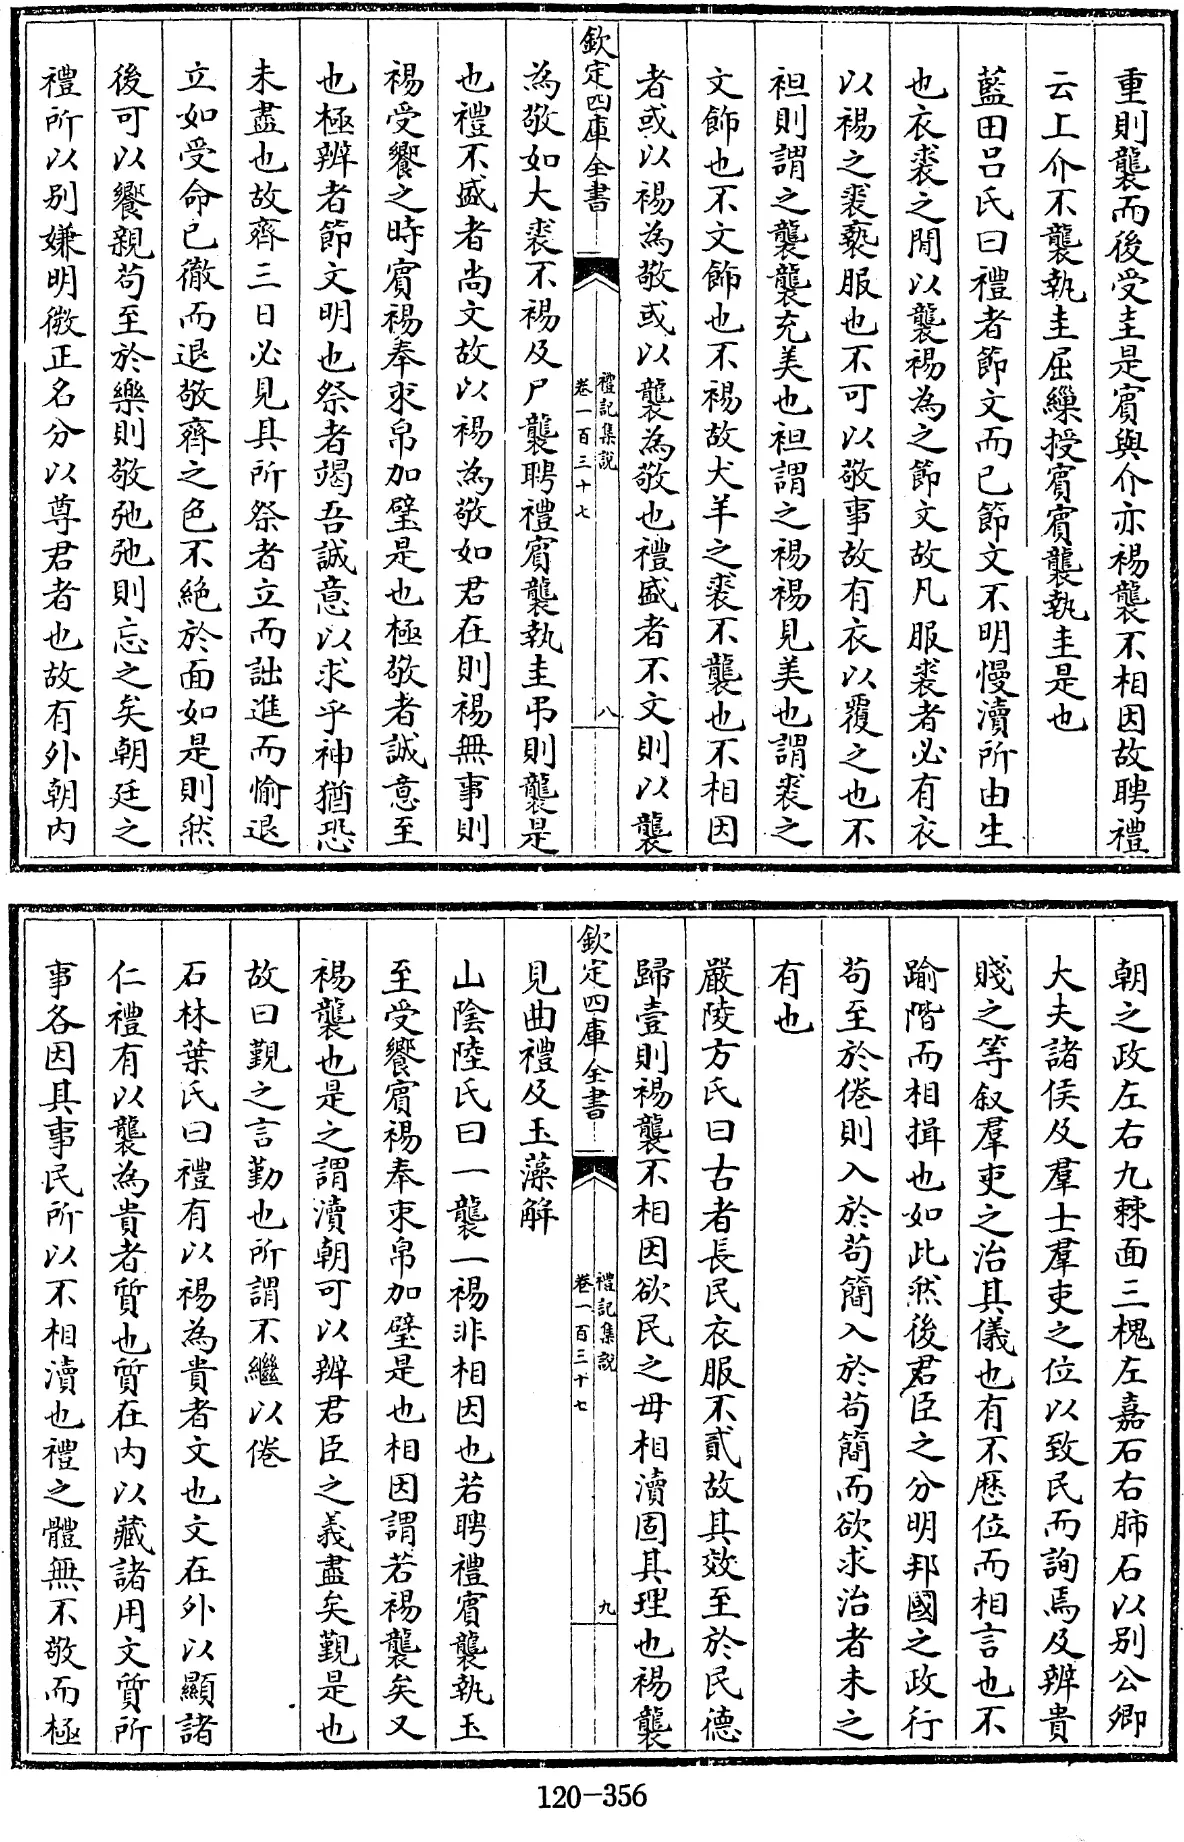 重則襲而後受圭是賔與介亦裼襲不相因故聘禮
云上介不襲執圭屈繅授賔賔襲執圭是也
藍田吕氏曰禮者節文而已節文不明慢瀆所由生
也衣裘之間以襲裼為之節文故凡服裘者必有衣
以裼之裘褻服也不可以敬事故有衣以覆之也不
袒則謂之襲襲充美也袒謂之裼裼見美也謂裘之
文飾也不文飾也不裼故犬羊之裘不襲也不相因
者或以裼為敬或以襲為敬也禮盛者不文則以襲
欽定四庫全書
禮記集說
卷一百三十七
八
為敬如大裘不裼及尸襲聘禮賔襲執圭弔則襲是
也禮不盛者尚文故以裼為敬如君在則裼無事則
裼受饗之時賔裼奉束帛加璧是也極敬者誠意至
也極辨者節文明也祭者竭吾誠意以求乎神猶恐
未盡也故齊三日必見其所祭者立而詘進而愉退
立如受命已徹而退敬齊之色不絶於面如是則然
後可以饗親苟至於樂則敬弛弛則忘之矣朝廷之
禮所以别嫌明微正名分以尊君者也故有外朝内
朝之政左右九棘面三槐左嘉石右肺石以别公卿
大夫諸侯及羣士羣吏之位以致民而詢焉及辨貴
賤之等叙羣吏之治其儀也有不歴位而相言也不
踰階而相揖也如此然後君臣之分明邦國之政行
苟至於倦則入於苟簡入於苟簡而欲求治者未之
有也
嚴陵方氏曰古者長民衣服不貳故其效至於民德
歸壹則裼襲不相因欲民之毋相瀆固其理也裼襲
欽定四庫全書
禮記集說
卷一百三十七
九
見曲禮及玉藻解
山陰陸氏曰一襲一裼非相因也若聘禮賔襲執玉
至受饗賔裼奉束帛加璧是也相因謂若裼襲矣又
裼襲也是之謂瀆朝可以辨君臣之義盡矣覲是也
故曰覲之言勤也所謂不繼以倦
石林葉氏曰禮有以裼為貴者文也文在外以顯諸
仁禮有以襲為貴者質也質在内以藏諸用文質所
事各因其事民所以不相瀆也禮之體無不敬而極
120-356